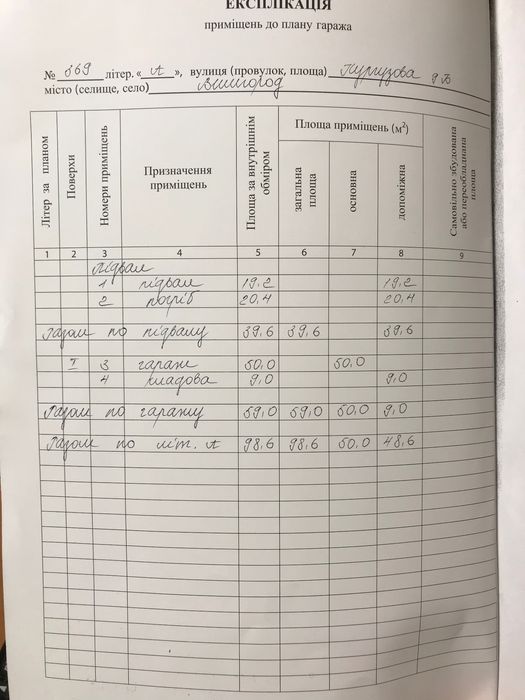 ЕКСПЛІКАЦІЯ
приміщень до плану гаража
№ 869 літер. « А », вулиця (провулок, площа) Кургузова 9 Б
місто (селище, село) Вишгород
Літер за планом Поверхи Номери приміщень Призначення приміщень Площа за внутрішнім обміром Площа приміщень (м²) загальна площа основна допоміжна Самовільно збудована або переобладнана площа
1 2 3 4 5 6 7 8 9
підвал
1 підвал 19,2 19,2
2 погріб 20,4 20,4
Разом по підвалу 39,6 39,6 39,6
I 3 гараж 50,0 50,0
4 кладова 9,0 9,0
Разом по гаражу 59,0 59,0 50,0 9,0
Разом по літ. А 98,6 98,6 50,0 48,6